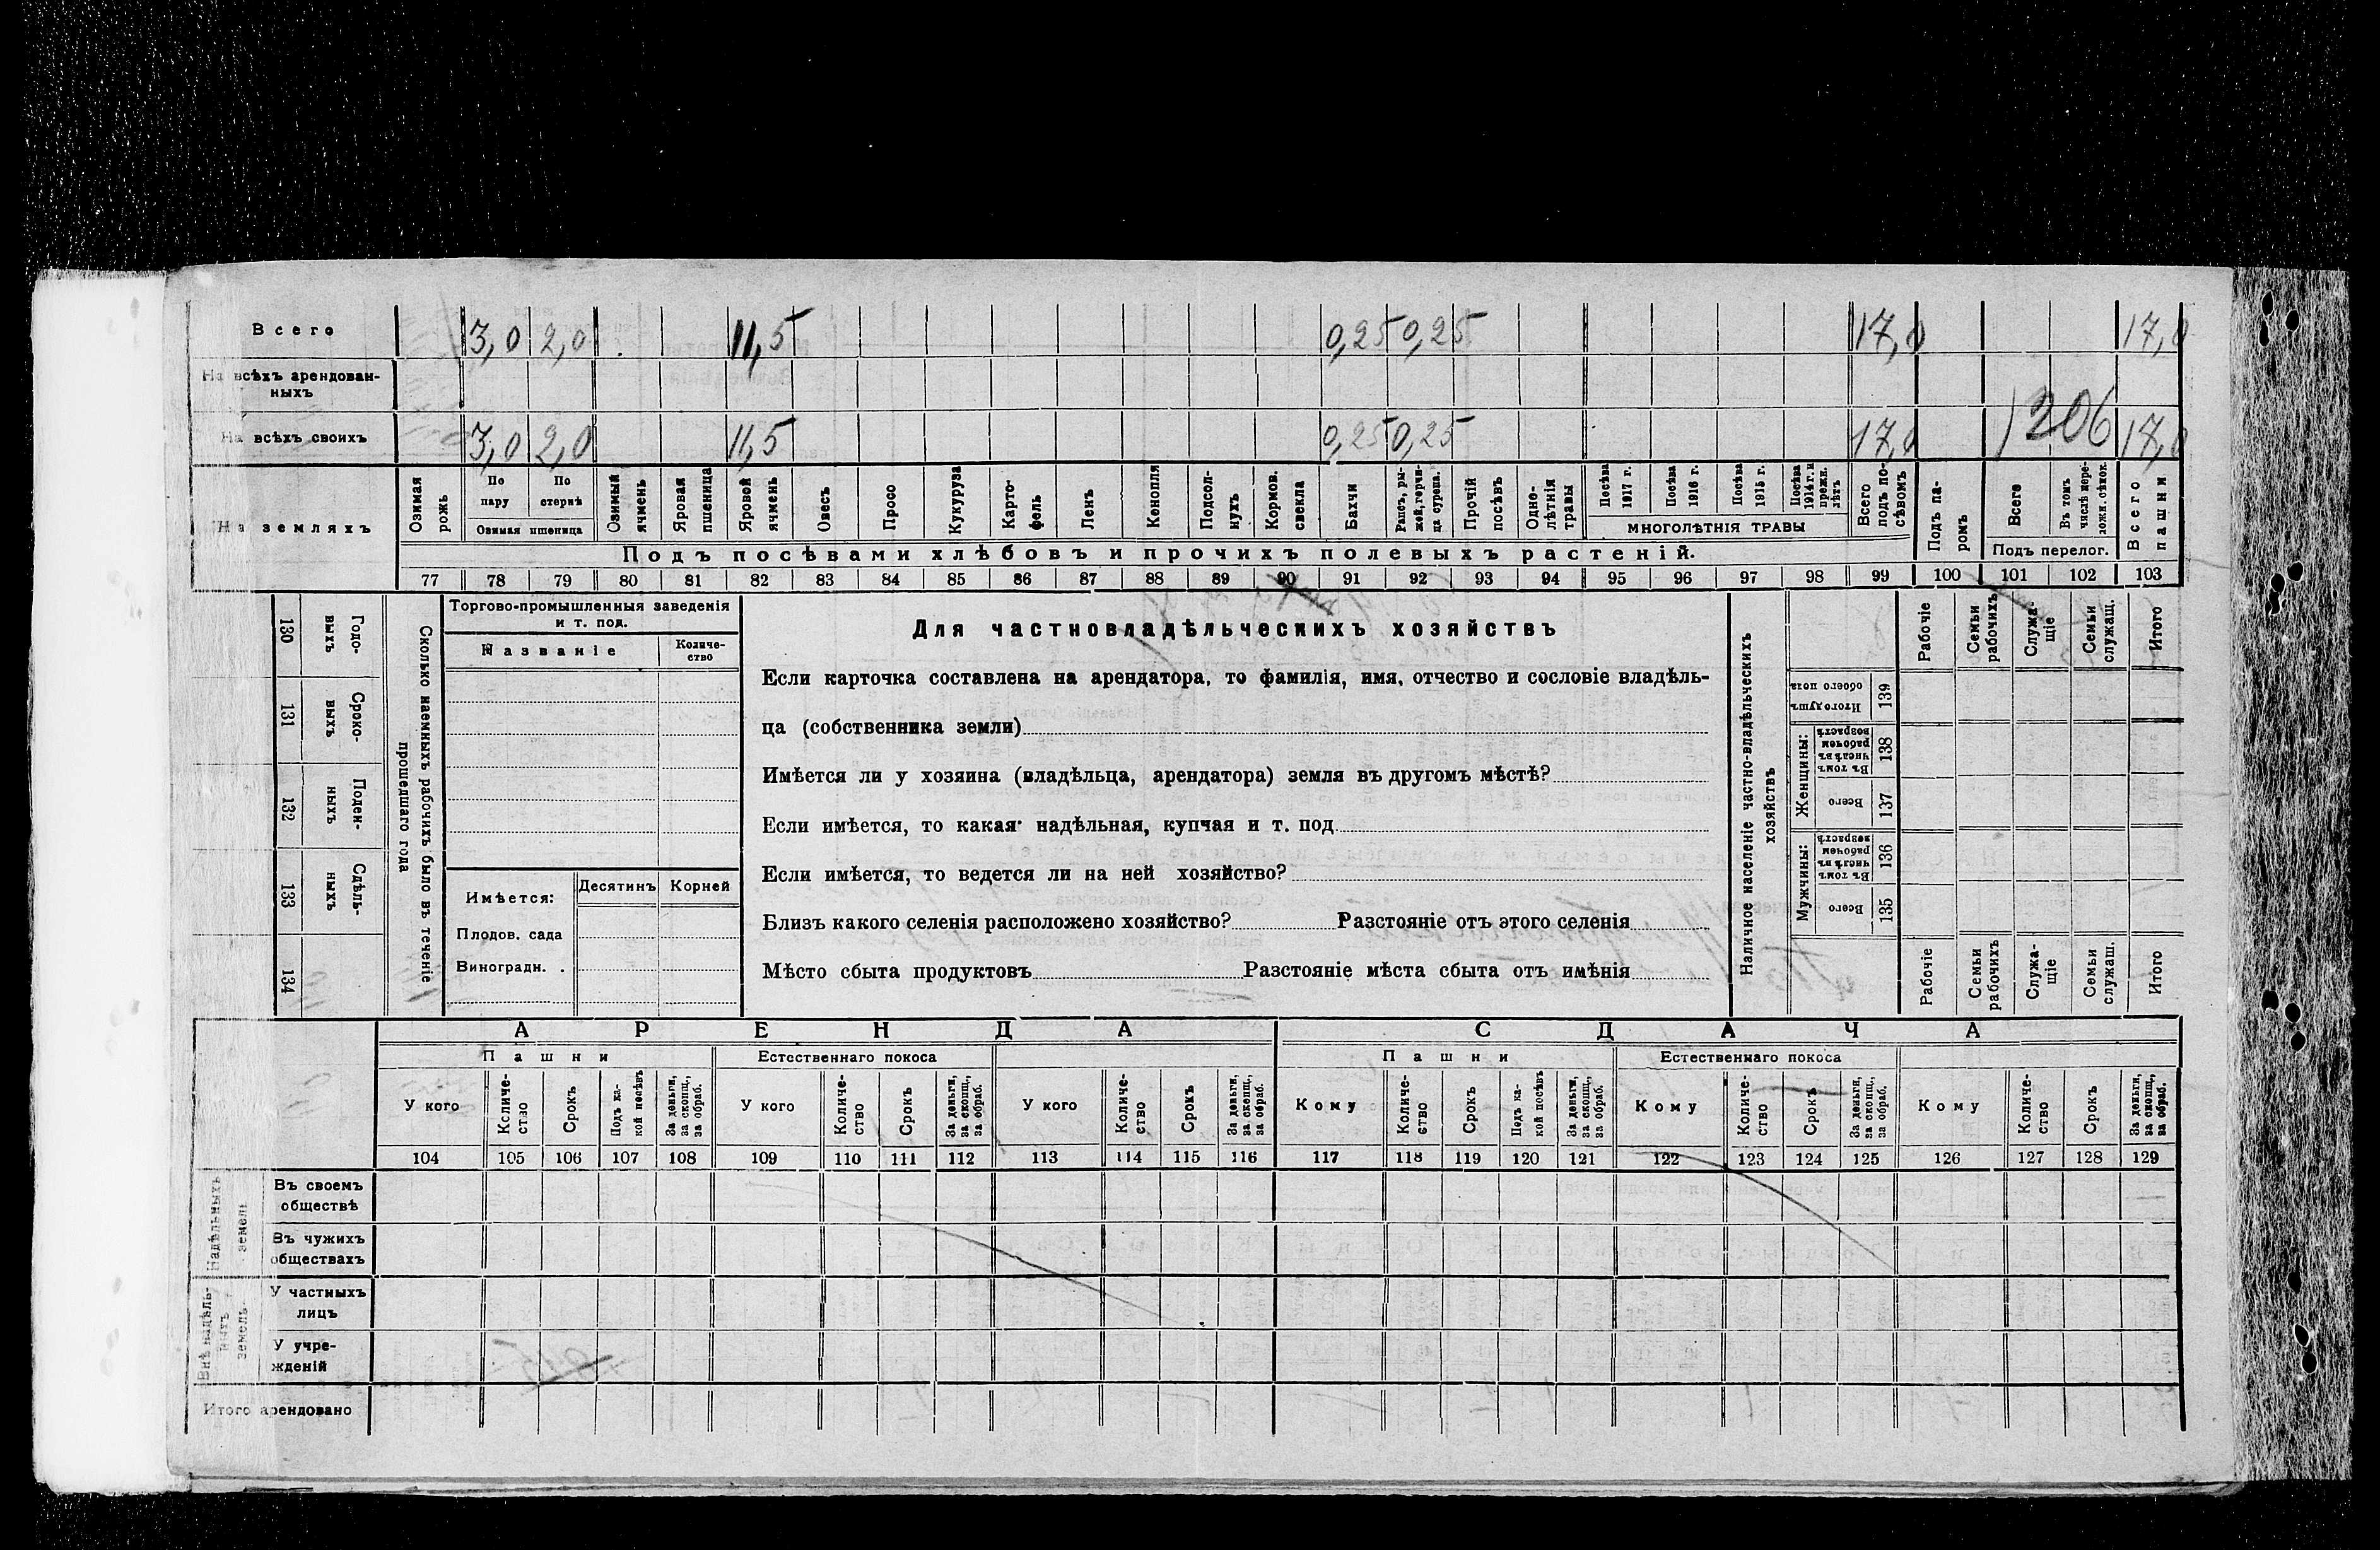 Всего 3,0 2,0 11,5 0,25 0,25 17,0 17,0
На всѣхъ арендован-
ныхъ
На всѣхъ своихъ 3,0 2,0 11,5 0,25 0,25 17,0 1206 17,0
На земляхъ
Озимая рожь
По пару
По стернѣ
Озимая пшеница
Озимый ячмень
Яровая пшеница
Яровой ячмень
Овесъ
Просо
Кукуруза
Карто-
фель
Ленъ
Конопля
Подсол-
нухъ
Кормов. свекла
Бахчи
Рапсъ, ры-
жей, горчи-
ца сурепа.
Прочій посѣвъ
Одно-
лѣтнія травы
Посѣва 1917 г.
Посѣва 1916 г.
Посѣва 1915 г.
Посѣва 1914 г. и прежн. лѣтъ
МНОГОЛѢТНІЯ ТРАВЫ
Всего подъ по-
сѣвомъ
Подъ па-
ромъ
Всего
Въ томъ числѣ пере-
ложн. сѣнок.
Подъ перелог.
Всего пашни
Подъ посѣвами хлѣбовъ и прочихъ полевыхъ растеній.
77 78 79 80 81 82 83 84 85 86 87 88 89 90 91 92 93 94 95 96 97 98 99 100 101 102 103
130 Годо-
выхъ
131 Сроко-
выхъ
132 Поден-
ныхъ
133 Сдѣль-
ныхъ
134
Сколько наемныхъ рабочихъ было въ теченіе
прошедшаго года
Торгово-промышленныя заведенія
и т. под.
Названіе
Количе-
ство
Имѣется:
Десятинъ Корней
Плодов. сада
Виноградн. .
Для частновладѣльческихъ хозяйствъ
Если карточка составлена на арендатора, то фамилія, имя, отчество и сословіе владѣль-
ца (собственника земли)
Имѣется ли у хозяина (владѣльца, арендатора) земля въ другомъ мѣстѣ?
Если имѣется, то какая· надѣльная, купчая и т. под
Если имѣется, то ведется ли на ней хозяйство?
Близъ какого селенія расположено хозяйство? Разстояніе отъ этого селенія
Мѣсто сбыта продуктовъ Разстояніе мѣста сбыта отъ имѣнія
Наличное населеніе частно-владѣльческихъ
хозяйствъ
Рабочіе
Семьи рабочихъ
Служа-
щіе
Семьи служащ.
Итого
Итого душъ обоего пола 139
Женщины:
Въ томъ числѣ въ рабочем возрастѣ 138
Всего 137
Мужчины:
Въ томъ числѣ въ рабочем возрастѣ 136
Всего 135
Рабочіе
Семьи рабочихъ
Служа-
щіе
Семьи служащ.
Итого
АРЕНДА СДАЧА
Пашни Естественнаго покоса Пашни Естественнаго покоса
У кого
Количе-
ство
Срокъ
Подъ ка-
кой посѣвъ
За деньги,
за скопщ.,
за обраб.
У кого
Количе-
ство
Срокъ
За деньги,
за скопщ.,
за обраб.
У кого
Количе-
ство
Срокъ
За деньги,
за скопщ.,
за обраб.
Кому
Количе-
ство
Срокъ
Подъ ка-
кой посѣвъ
За деньги,
за скопщ.,
за обраб.
Кому
Количе-
ство
Срокъ
За деньги,
за скопщ.,
за обраб.
Кому
Количе-
ство
Срокъ
За деньги,
за скопщ.,
за обраб.
104 105 106 107 108 109 110 111 112 113 114 115 116 117 118 119 120 121 122 123 124 125 126 127 128 129
Надѣльныхъ
земель
Въ своемъ
обществѣ
Въ чужихъ
обществахъ
Внѣ надѣль-
ныхъ
земель
У частныхъ
лицъ
У учре-
жденій
Итого арендовано